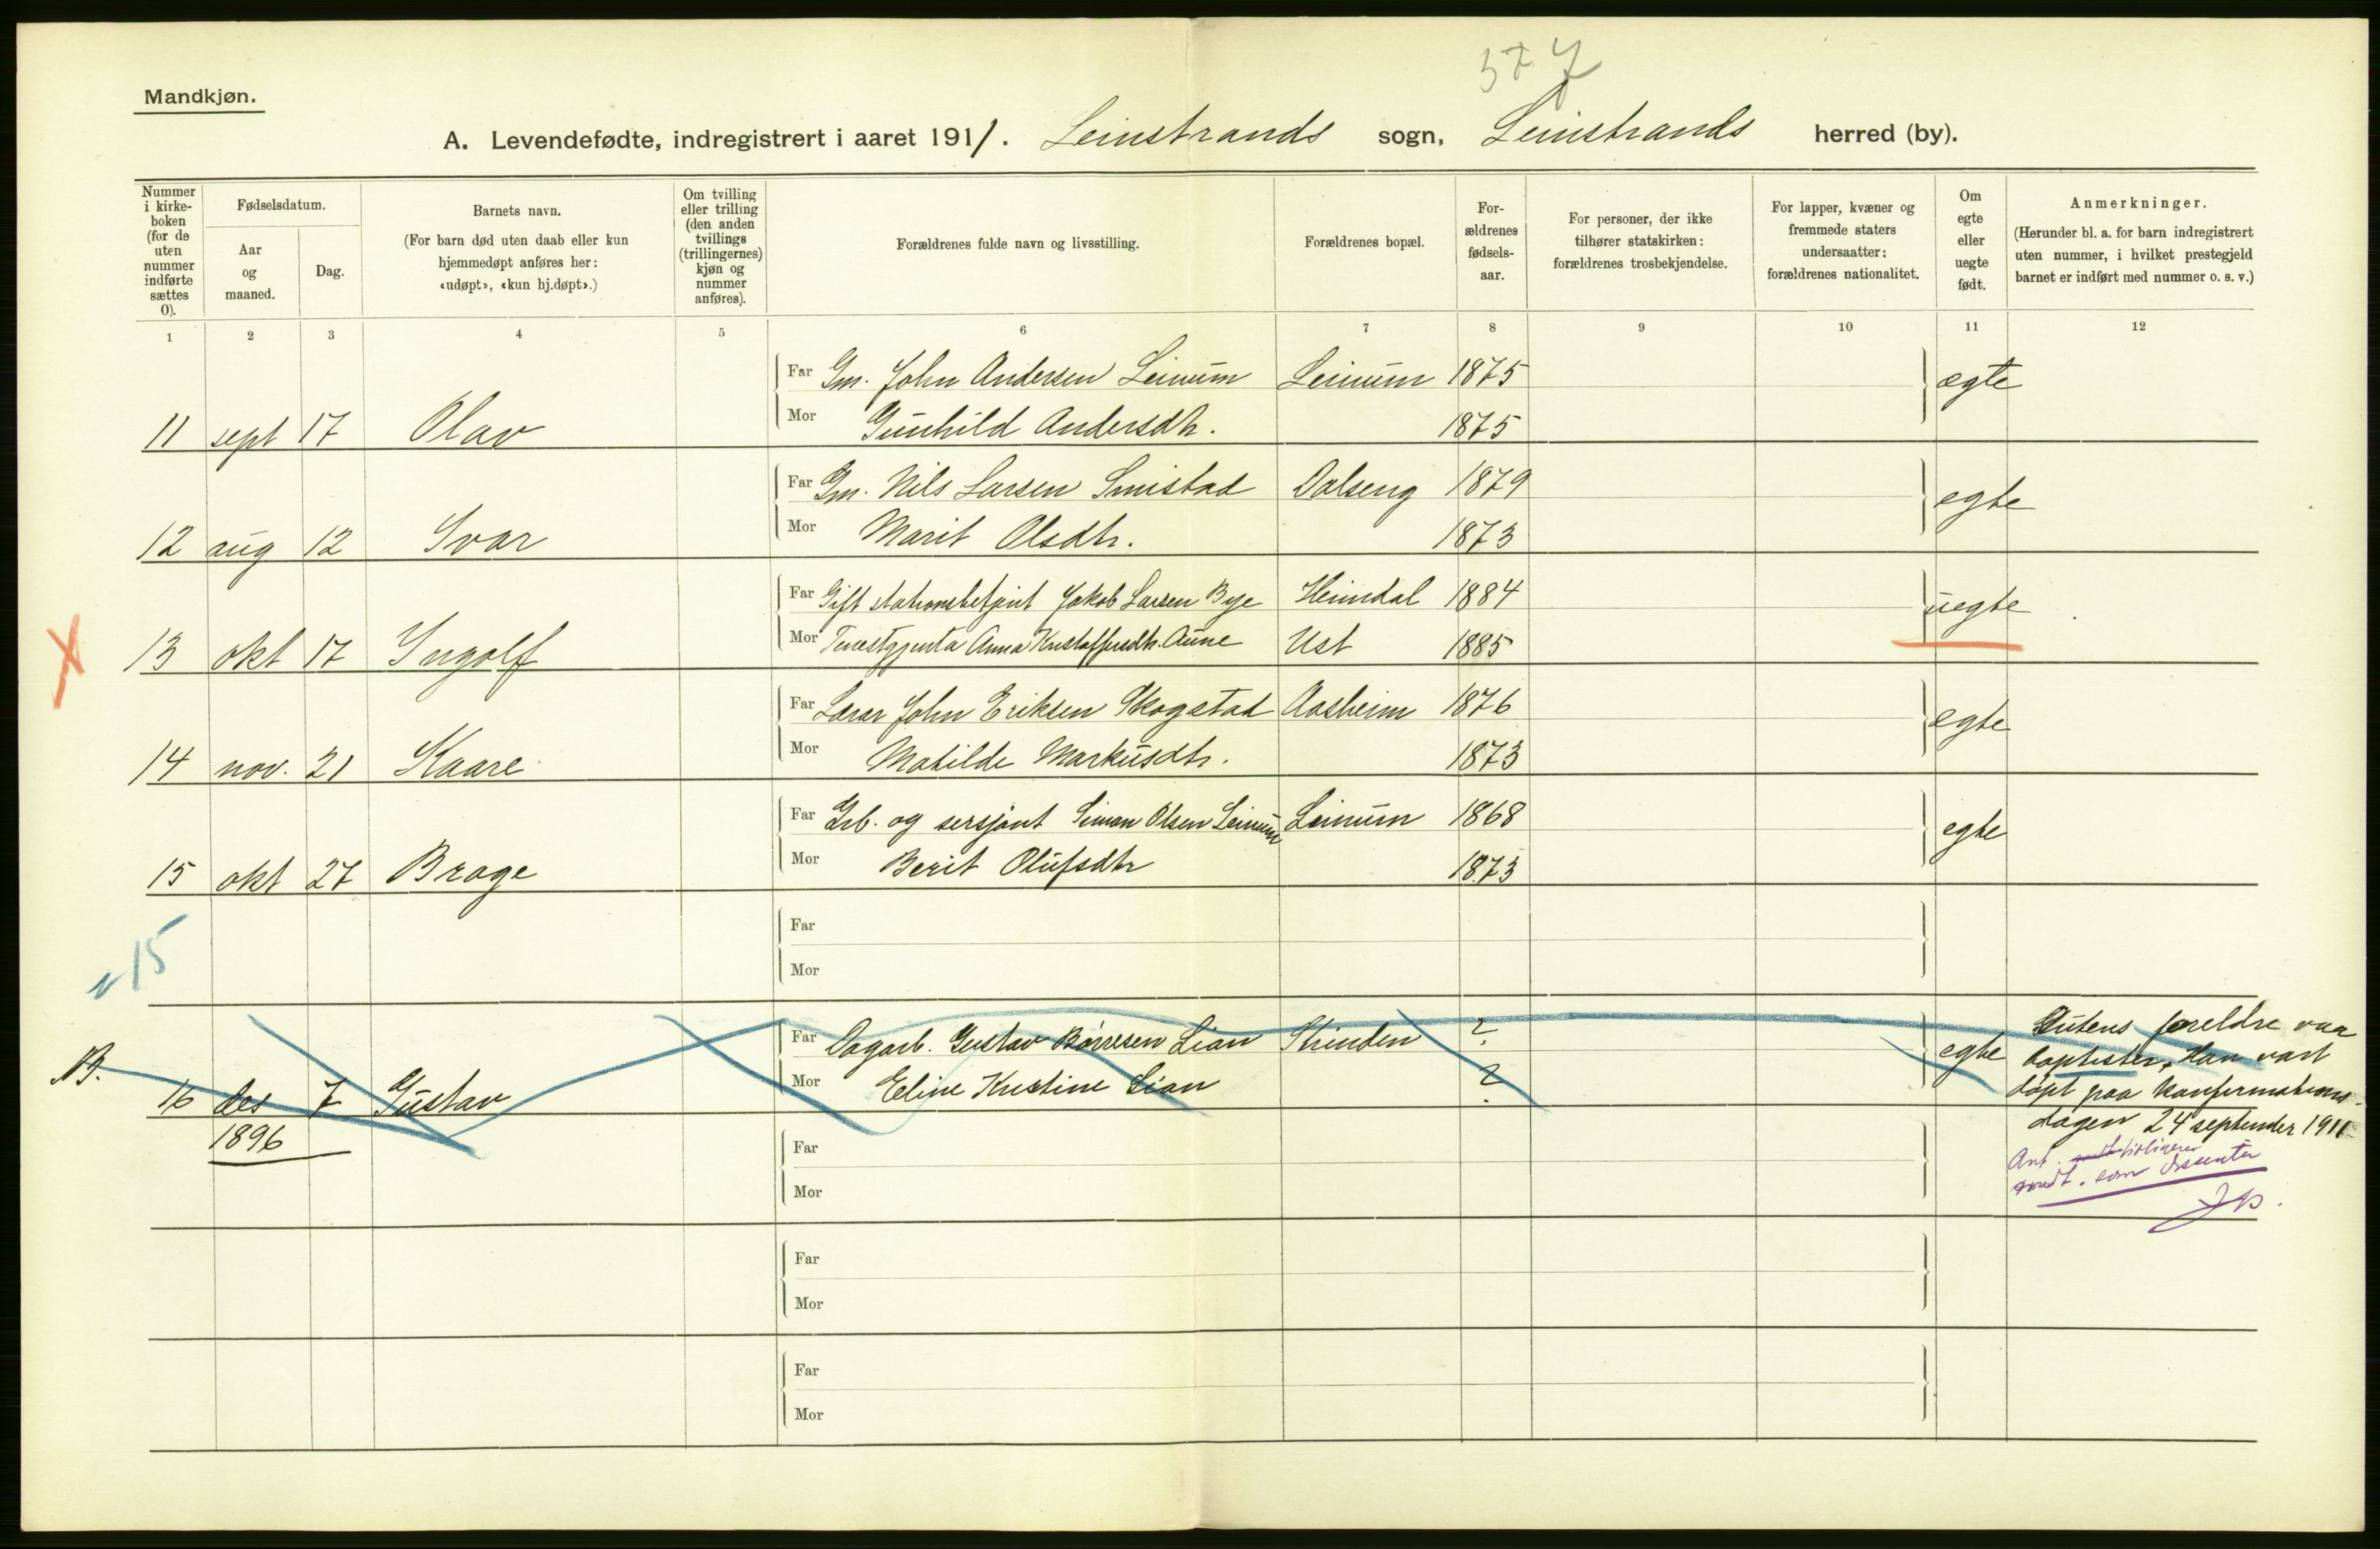 377
Mandkjøn.
A. Levendefødte, indregistrert i aaret 1911. Leinstrands sogn, Leinstrands herred (by).
Nummer i kirke-boken (for de uten nummer indførte sættes 0).
Fødselsdatum.
Aar og maaned.
Dag.
Barnets navn.
(For barn død uten daab eller kun hjemmedøpt anføres her: «udøpt», «kun hj.døpt».)
Om tvilling eller trilling (den anden tvillings (trillingernes) kjøn og nummer anføres).
Forældrenes fulde navn og livsstilling.
Forældrenes bopæl.
For-ældrenes fødsels-aar.
For personer, der ikke tilhører statskirken: forældrenes trosbekjendelse.
For lapper, kvæner og fremmede staters undersaatter: forældrenes nationalitet.
Om egte eller uegte født.
Anmerkninger.
(Herunder bl. a. for barn indregistrert uten nummer, i hvilket prestegjeld barnet er indført med nummer o. s. v.)
1 2 3 4 5 6 7 8 9 10 11 12
Far Gm. John Andersen Leinum Leinum 1875 egte
Mor Gunhild Andersdtr. 1875
11 sept 17 Olav
Far Gm. Nils Larsen Smistad Dalseng 1879 egte
Mor Marit Olsdtr. 1873
12 aug 12 Ivar
Far Gift stationsbetjent Jakob Larsen Bye Heimdal 1884 uegte
Mor Tenestgjenta Anna Kristoffersdtr. Aune Ust 1885
13 okt 17 Ingolf
Far Lærar John Eriksen Skogstad Aasheim 1876 egte
Mor Matilde Markusdtr. 1873
14 nov. 21 Kaare
Far Grb. og sersjant Simon Olsen Leinum Leinum 1868 egte
Mor Berit Olufsdtr 1873
15 okt 27 Brage
15
Far
Mor
Far Dagarb. Gustav Børresen Lian Strinden ? egte
Mor Eline Kristine Lian ?
NB. 16 des 7 Gustav
1896
Gutens foreldre var
baptister, Han vart
døpt paa konfirmations-
dagen 24 september 1911
Ant. tidligere
medt. som dissenter
Far
Mor
Far
Mor
Far
Mor